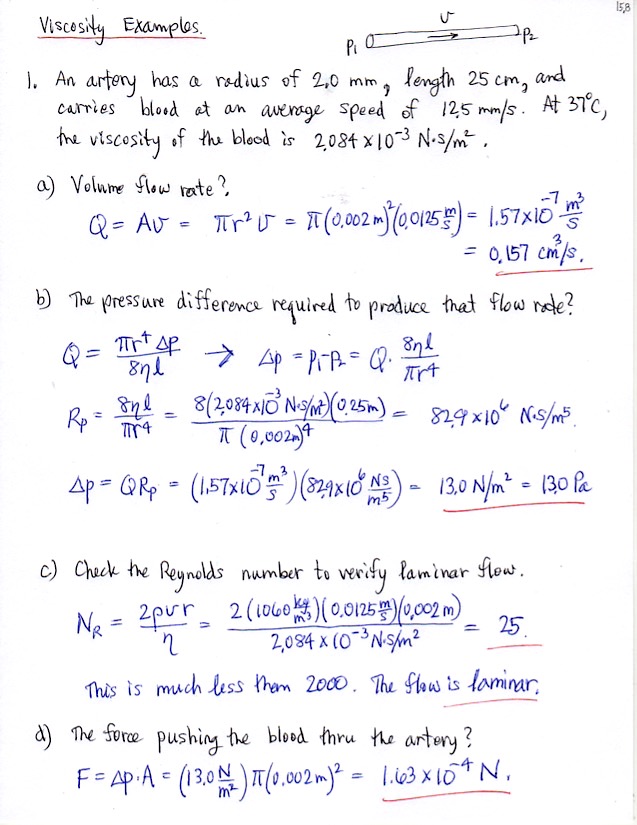 15,8
Viscosity Examples.
v
P₁ P₂
1. An artery has a radius of 2,0 mm, length 25 cm, and
carries blood at an average speed of 12,5 mm/s. At 37°C,
the viscosity of the blood is 2,084 x 10⁻³ N·s/m².
a) Volume flow rate?
Q = Av = πr²v = π(0,002 m)²(0,0125 m/s) = 1.57x10⁻⁷ m³/s
= 0,157 cm³/s.
b) The pressure difference required to produce that flow rate?
Q = πr⁴ Δp / 8ηl → Δp = p₁-p₂ = Q · 8ηl / πr⁴
Rp = 8ηl / πr⁴ = 8(2,084x10⁻³ N·s/m²)(0,25m) / π(0,002m)⁴ = 82,9 x 10⁶ N·s/m⁵.
Δp = QRp = (1,57x10⁻⁷ m³/s)(82,9x10⁶ Ns/m⁵) = 13,0 N/m² = 13,0 Pa
c) Check the Reynolds number to verify laminar flow.
N_R = 2ρvr / η = 2(1060 kg/m³)(0,0125 m/s)(0,002 m) / 2,084 x 10⁻³ N·s/m² = 25.
This is much less than 2000. The flow is laminar.
d) The force pushing the blood thru the artery?
F = Δp·A = (13,0 N/m²) π(0,002 m)² = 1.63 x 10⁻⁴ N.